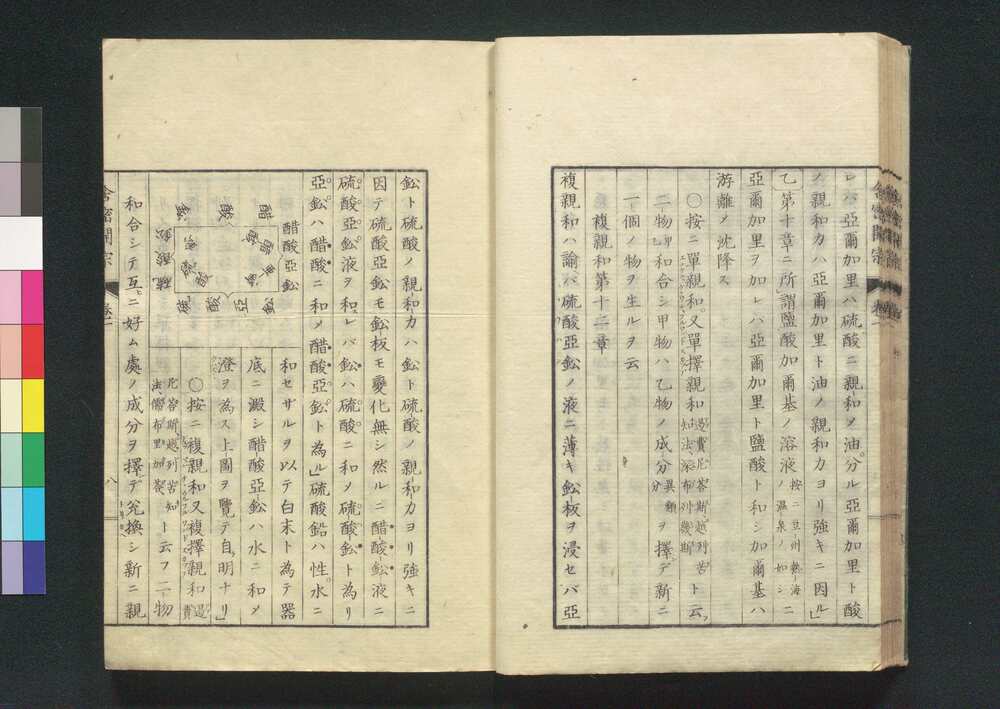 レバ亞爾加里ハ硫酸ニ親和〆油分ル亞爾加里ト酸
ノ親和力ハ亞爾加里ト油ノ親和力ヨリ強キニ因ル」
乙第十章ニ所謂鹽酸加爾基ノ溶液按ニ豆州熱海ノ温泉ノ如シニ
亞爾加里ヲ加レハ亞爾加里ト鹽酸ト和シ加爾基ハ
游離〆沈降ス
〇按ニ單親和又單擇親和ト云フ
二物和合シ甲物ハ乙物ノ成分異類ヲ擇デ新ニ
一個ノ物ヲ生ルヲ云
複親和第十二章
複親和ハ諭バ硫酸亞鉛ノ液ニ薄キ鉛板ヲ浸セバ亞
舎密開宗 巻一
鉛ト硫酸ノ親和力ハ鉛ト硫酸ノ親和力ヨリ強キニ
因テ硫酸亞鉛モ鉛板モ變化無シ然ルニ醋酸鉛液ニ
硫酸亞鉛液ヲ和レバ鉛ハ硫酸ニ和〆硫酸鉛ト為リ
亞鉛ハ醋酸ニ和〆醋酸亞鉛ト為ル」硫酸鉛ハ性水ニ
醋酸亞鉛
和セザルヲ以テ白末ト為テ器
底ニ澱シ醋酸亞鉛ハ水ニ和〆
澄ヲ為ス上圖ヲ覽テ自明ナリ」
〇按ニ複親和又複擇親和
ト云フ二物
和合シテ互ニ好ム處ノ成分ヲ擇デ兌換シ新ニ親
舎密開宗 巻一 八